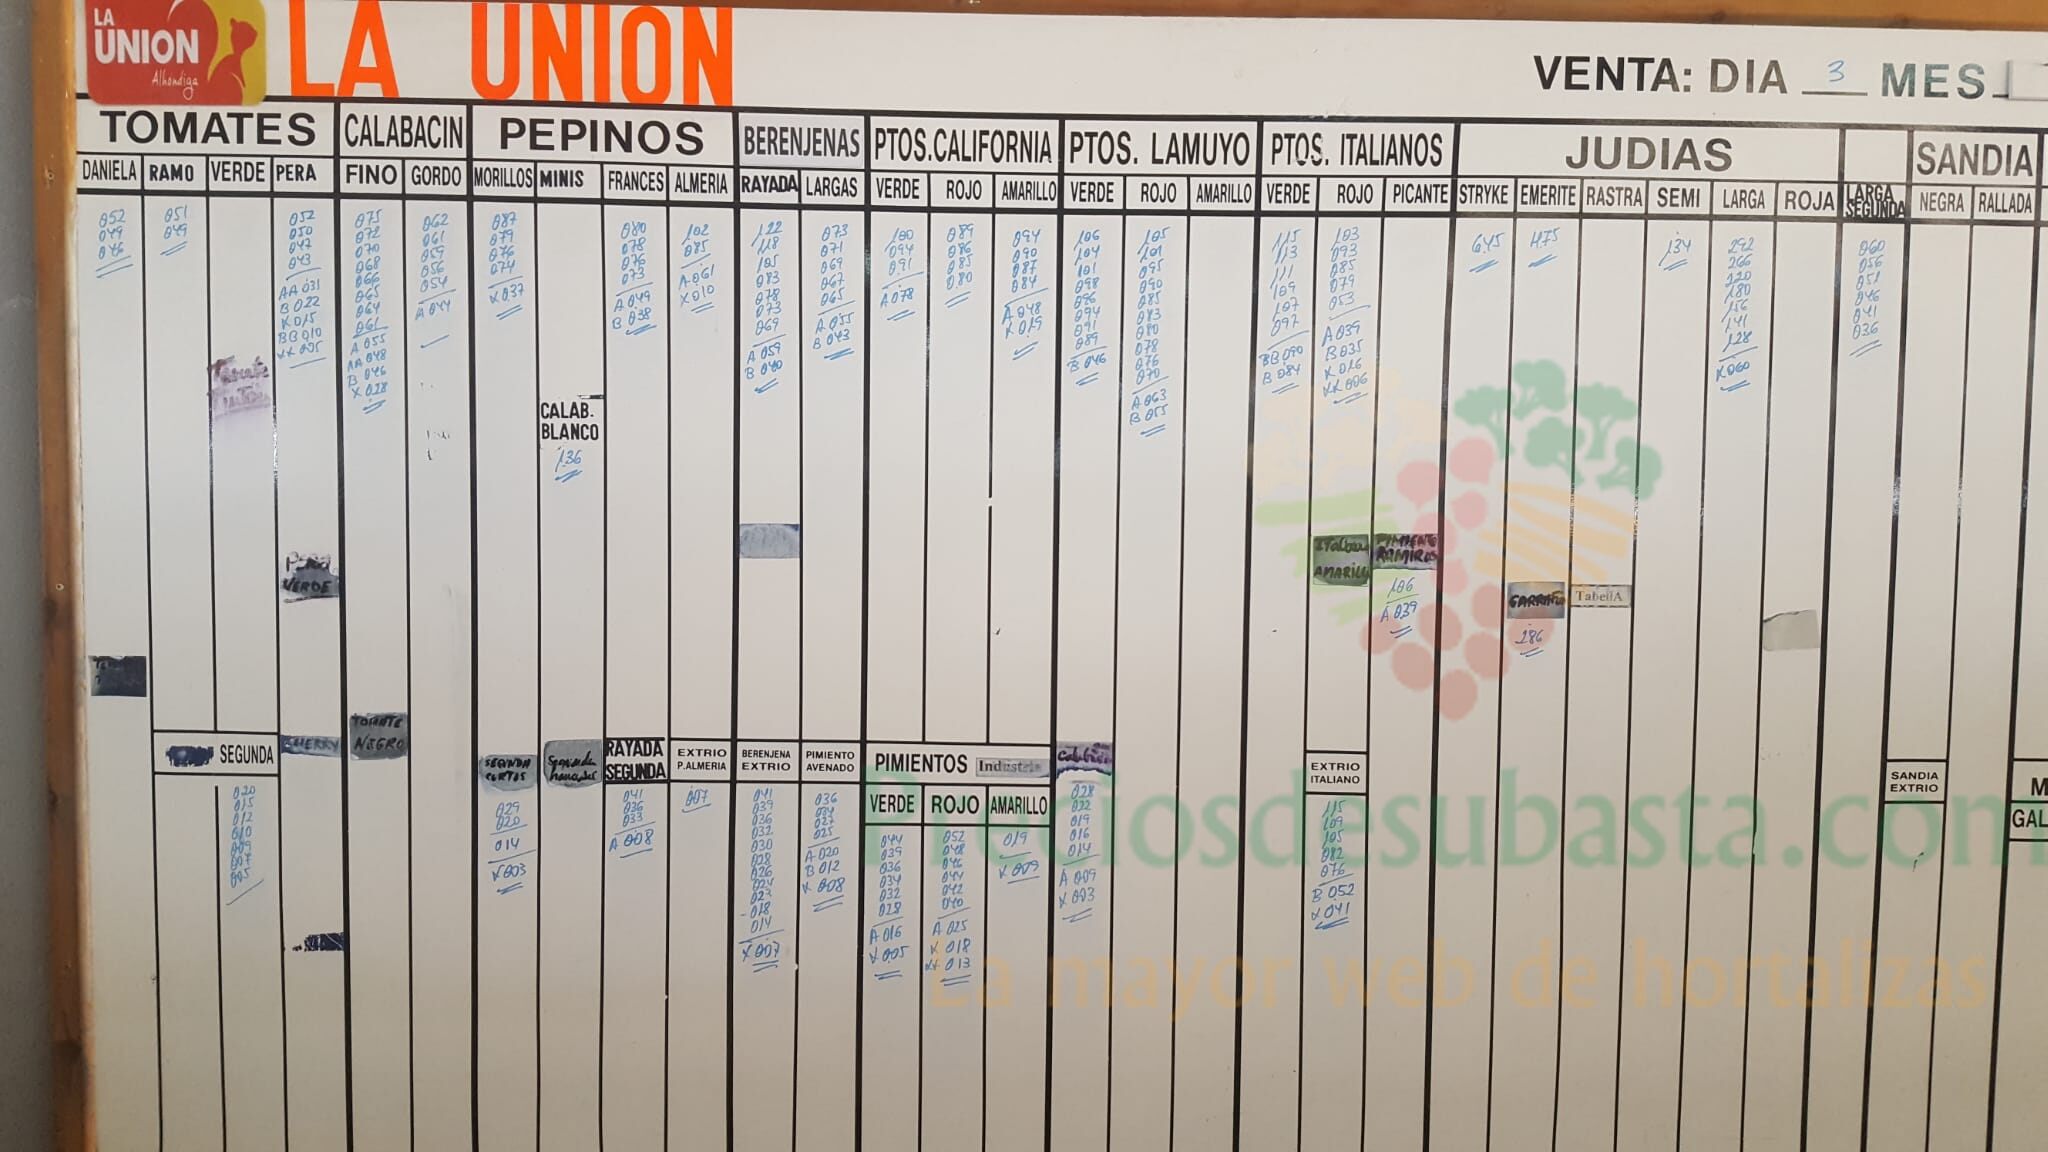 LA
UNION
Alhóndiga
LA UNION
VENTA: DIA 3 MES
TOMATES
CALABACIN
PEPINOS
BERENJENAS
PTOS.CALIFORNIA
PTOS. LAMUYO
PTOS. ITALIANOS
JUDIAS
LARGA
SEGUNDA
SANDIA
DANIELA RAMO VERDE PERA
FINO GORDO
MORILLOS MINIS FRANCES ALMERIA
RAYADA LARGAS
VERDE ROJO AMARILLO
VERDE ROJO AMARILLO
VERDE ROJO PICANTE
STRYKE EMERITE RASTRA SEMI LARGA ROJA
NEGRA RALLADA
052
049
046
051
049
052
050
047
043
AA 031
B 022
X 015
BB 010
XX 005
075
072
070
068
066
065
064
061
A 055
AA 048
B 046
X 028
062
061
059
056
054
A 044
087
079
076
074
X 037
080
078
076
073
A 049
B 038
102
085
A 061
X 010
122
118
105
083
078
073
069
A 059
B 040
073
071
069
067
065
A 055
B 043
100
094
091
A 078
089
086
085
080
094
090
087
084
A 048
X 019
106
104
101
098
096
094
091
089
B 046
105
101
095
090
085
083
080
078
076
070
A 063
B 055
115
113
111
109
107
097
BB 090
B 084
103
093
085
079
053
A 039
B 035
X 016
XX 006
645
475
134
292
266
220
180
156
141
128
X 060
060
056
051
046
041
036
CALAB.
BLANCO
136
VERDE
AMARILLO
PIMIENTO
RAMIROS
106
A 039
TabellA
286
SEGUNDA
CHERRY
TOMATE
NEGRO
SEGUNDA
CORTOS
Segunda
RAYADA
SEGUNDA
EXTRIO
P.ALMERIA
BERENJENA
EXTRIO
PIMIENTO
AVENADO
PIMIENTOS Industria
VERDE ROJO AMARILLO
EXTRIO
ITALIANO
SANDIA
EXTRIO
M
GAL
020
015
012
010
009
007
005
029
020
014
X 003
041
036
033
A 008
007
041
039
036
032
030
028
026
024
023
018
014
X 007
036
034
027
025
A 020
B 012
X 008
044
039
036
034
032
028
A 016
X 005
052
048
046
044
042
040
A 025
X 018
XX 013
019
X 009
028
022
019
016
014
A 009
X 003
115
109
105
082
076
B 052
X 041
Preciosdesubasta.com
La mayor web de hortalizas